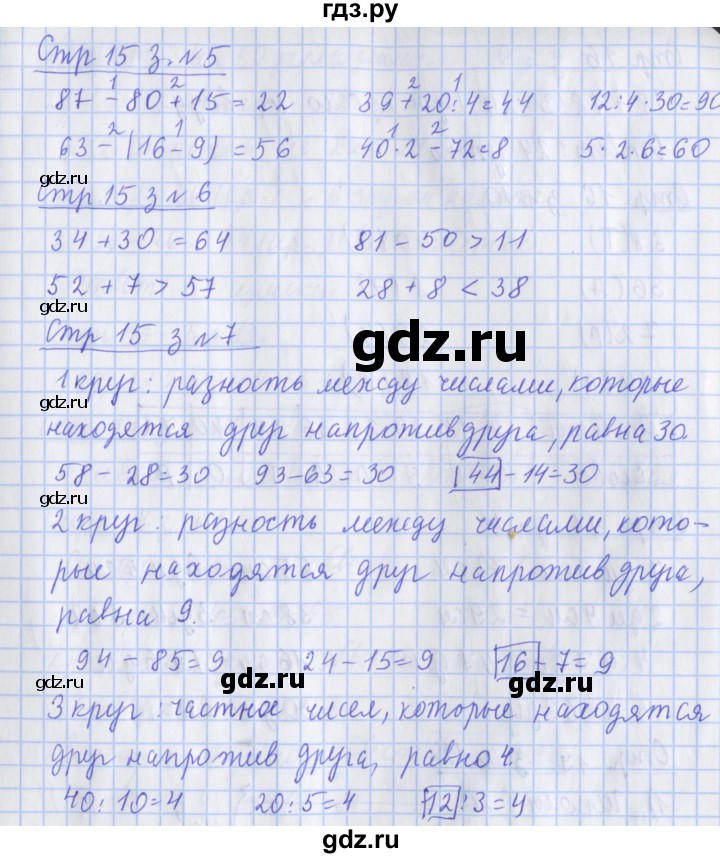 гдз.ру
Стр 15 з. №5
87 - 80 + 15 = 22   39 + 20 : 4 = 44   12 : 4 · 30 = 90
63 - (16 - 9) = 56   40 · 2 - 72 = 8   5 · 2 · 6 = 60
gdz.ru
Стр 15 з №6
34 + 30 = 64   81 - 50 > 11
52 + 7 > 57   28 + 8 < 38
gdz.ru
gdz.ru
Стр 15 з №7
1 круг: разность между числами, которые
находятся друг напротив друга, равна 30.
58 - 28 = 30   93 - 63 = 30   44 - 14 = 30
2 круг: разность между числами, кото-
рые находятся друг напротив друга,
gdz.ru
равна 9.
94 - 85 = 9   24 - 15 = 9   16 - 7 = 9
gdz.ru
gdz.ru
3 круг: частное чисел, которые находятся
друг напротив друга, равно 4.
40 : 10 = 4   20 : 5 = 4   12 : 3 = 4
gdz.ru